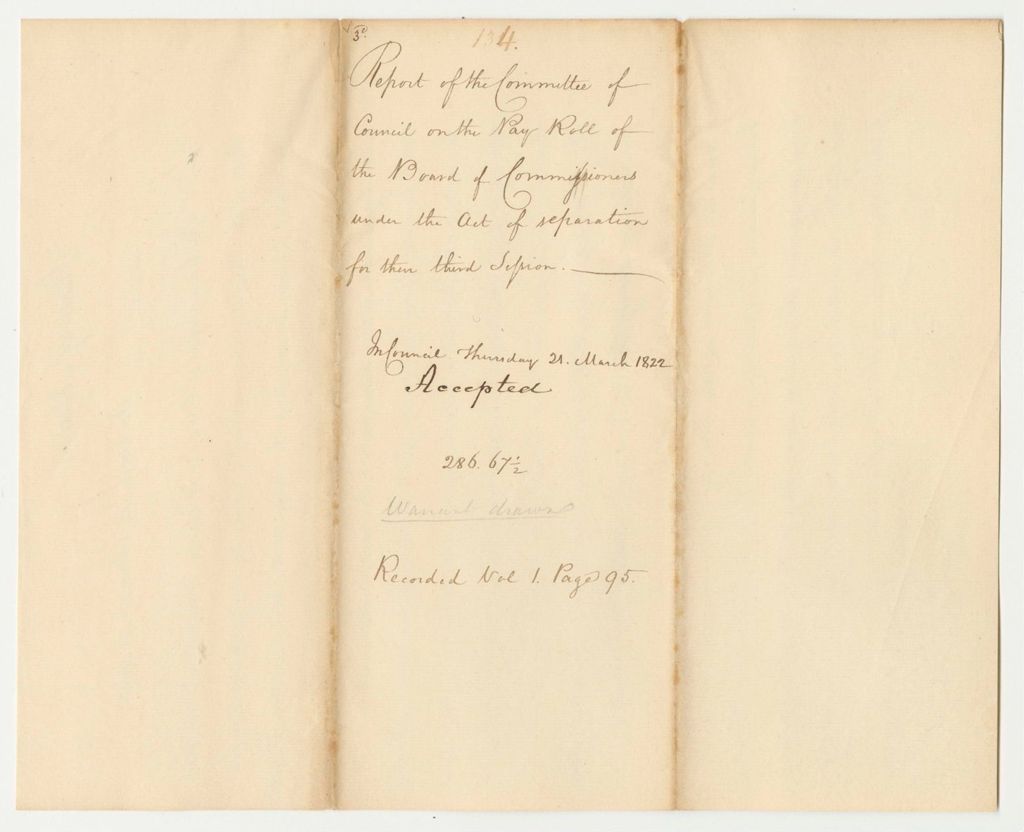 3d.
134.
Report of the Committee of
Council on the Pay Roll of
the Board of Commissioners
under the Act of separation
for their third Session.
In Council Thursday 21. March 1822
Accepted
286.67½
Warrant drawn
Recorded Vol 1. Page 95.